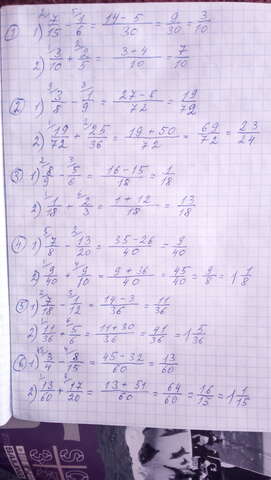 ① 1) 7/15 - 1/6 = (14-5)/30 = 9/30 = 3/10
2) 3/10 + 2/5 = (3+4)/10 = 7/10
② 1) 3/8 - 1/9 = (27-8)/72 = 19/72
2) 19/72 + 25/36 = (19+50)/72 = 69/72 = 23/24
③ 1) 8/9 - 5/6 = (16-15)/18 = 1/18
2) 1/18 + 2/3 = (1+12)/18 = 13/18
④ 1) 7/8 - 13/20 = (35-26)/40 - 9/40
2) 9/40 + 9/10 = (9+36)/40 = 45/40 = 9/8 = 1 1/8
⑤ 1) 7/18 - 1/12 = (14-3)/36 = 11/36
2) 11/36 + 5/6 = (11+30)/36 = 41/36 = 1 5/36
⑥ 1) 3/4 - 8/15 = (45-32)/60 = 13/60
2) 13/60 + 17/20 = (13+51)/60 = 64/60 = 16/15 = 1 1/15